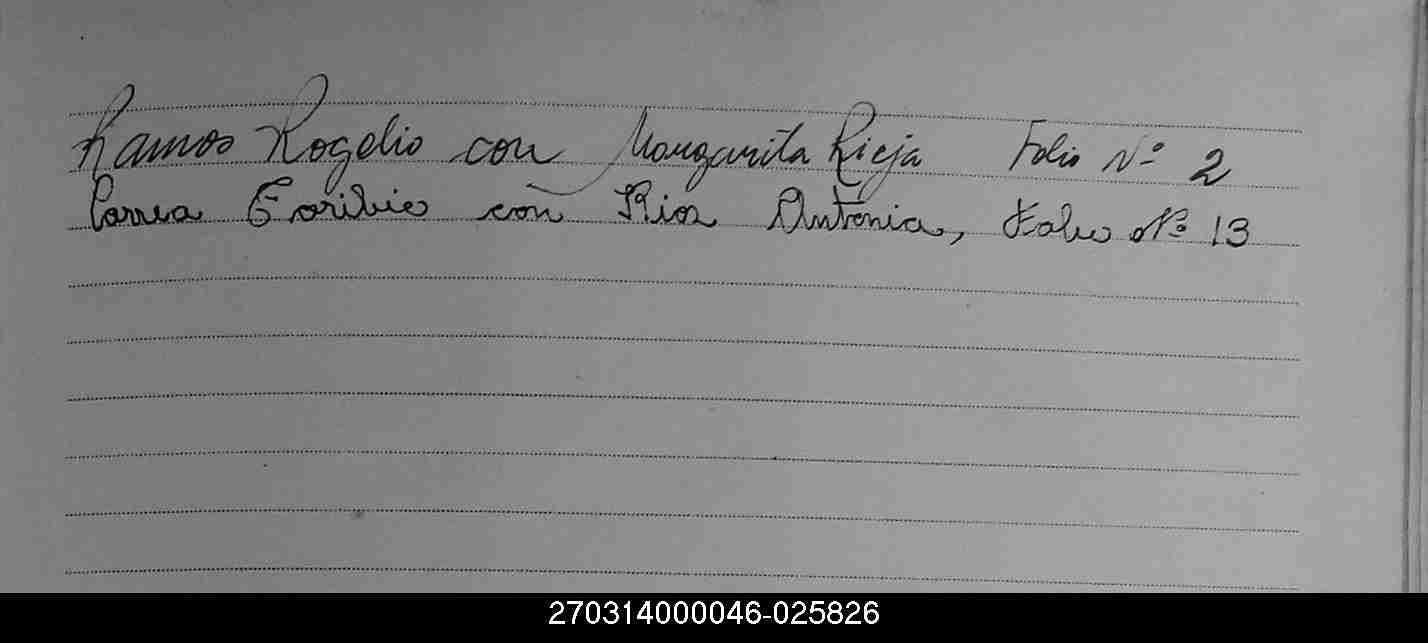 Ramos Rogelio con Margarita Rieja Folio Nº 2
Correa Toribio con Rios Antonia, Folio Nº 13
270314000046-025826